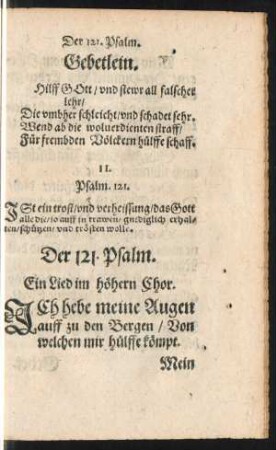 Der 121. Psalm.
Gebetlein.
Hilff GOtt / vnd stewr all falscher
lehr /
Die vmbher schleicht / vnd schadet sehr.
Wend ab die wolverdienten straff /
Für frembden Völckern hülffe schaff.
II.
Psalm. 121.
ISt ein trost / vnd verheissung / das Gott
alle die / so auff in trawen / gnediglich erhal-
ten / schützen / vnd trösten wolle.
Der 121. Psalm.
Ein Lied im höhern Chor.
ICh hebe meine Augen
auff zu den Bergen / Von
welchen mir hülffe kömpt.
Mein